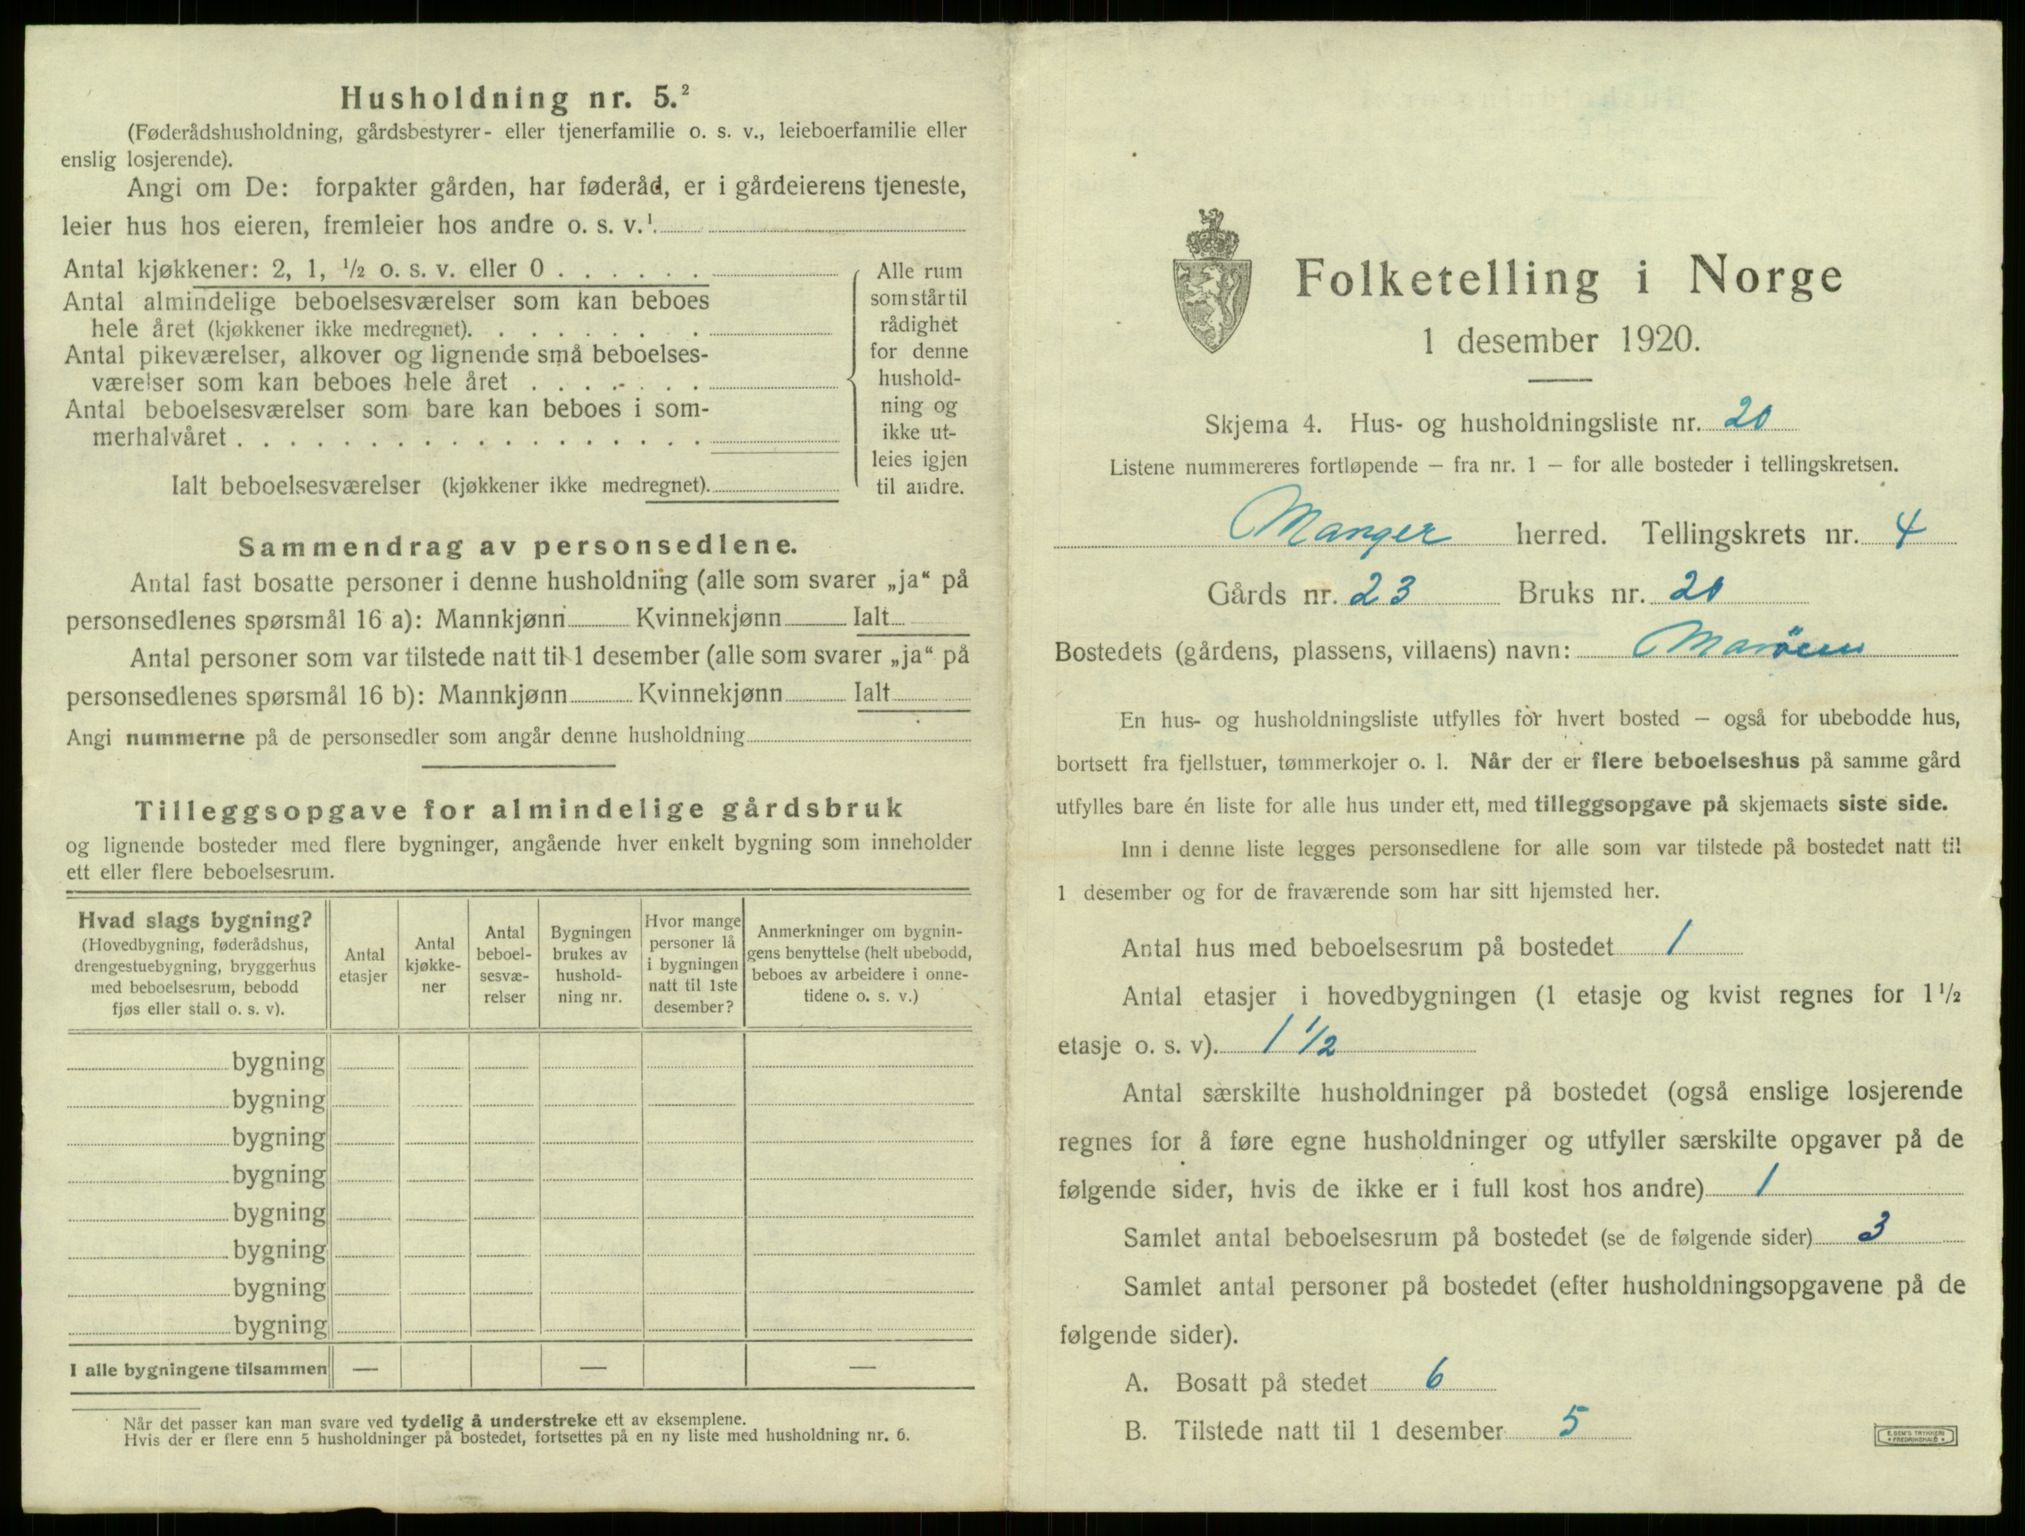 Husholdning nr. 5.²
(Føderådshusholdning, gårdsbestyrer- eller tjenerfamilie o. s. v., leieboerfamilie eller
enslig losjerende).
Angi om De: forpakter gården, har føderåd, er i gårdeierens tjeneste,
leier hus hos eieren, fremleier hos andre o. s. v.¹
Antal kjøkkener: 2, 1, ½ o. s. v. eller 0 . . . . . .
Antal almindelige beboelsesværelser som kan beboes
hele året (kjøkkener ikke medregnet). . . . . . . . .
Antal pikeværelser, alkover og lignende små beboelses-
værelser som kan beboes hele året . . . . . . .
Antal beboelsesværelser som bare kan beboes i som-
merhalvåret . . . . . . . . . . . . . . . . . .
Ialt beboelsesværelser (kjøkkener ikke medregnet).
Alle rum
som står til
rådighet
for denne
hushold-
ning og
ikke ut-
leies igjen
til andre.
Sammendrag av personsedlene.
Antal fast bosatte personer i denne husholdning (alle som svarer „ja“ på
personsedlenes spørsmål 16 a): Mannkjønn Kvinnekjønn Ialt
Antal personer som var tilstede natt til 1 desember (alle som svarer „ja“ på
personsedlenes spørsmål 16 b): Mannkjønn Kvinnekjønn Ialt
Angi nummerne på de personsedler som angår denne husholdning
Tilleggsopgave for almindelige gårdsbruk
og lignende bosteder med flere bygninger, angående hver enkelt bygning som inneholder
ett eller flere beboelsesrum.
Hvad slags bygning?
(Hovedbygning, føderådshus,
drengestuebygning, bryggerhus
med beboelsesrum, bebodd
fjøs eller stall o. s. v).
Antal
etasjer
Antal
kjøkke-
ner
Antal
beboel-
sesvæ-
relser
Bygningen
brukes av
hushold-
ning nr.
Hvor mange
personer lå
i bygningen
natt til 1ste
desember?
Anmerkninger om bygnin-
gens benyttelse (helt ubebodd,
beboes av arbeidere i onne-
tidene o. s. v.)
bygning
bygning
bygning
bygning
bygning
bygning
bygning
bygning
I alle bygningene tilsammen — — —
Når det passer kan man svare ved tydelig å understreke ett av eksemplene.
Hvis der er flere enn 5 husholdninger på bostedet, fortsettes på en ny liste med husholdning nr. 6.
Folketelling i Norge
1 desember 1920.
Skjema 4. Hus- og husholdningsliste nr. 20
Listene nummereres fortløpende – fra nr. 1 – for alle bosteder i tellingskretsen.
Manger herred. Tellingskrets nr. 4
Gårds nr. 23 Bruks nr. 20
Bostedets (gårdens, plassens, villaens) navn:
En hus- og husholdningsliste utfylles for hvert bosted – også for ubebodde hus,
bortsett fra fjellstuer, tømmerkojer o. l. Når der er flere beboelseshus på samme gård
utfylles bare én liste for alle hus under ett, med tilleggsopgave på skjemaets siste side.
Inn i denne liste legges personsedlene for alle som var tilstede på bostedet natt til
1 desember og for de fraværende som har sitt hjemsted her.
Antal hus med beboelsesrum på bostedet 1
Antal etasjer i hovedbygningen (1 etasje og kvist regnes for 1 ½
etasje o. s. v). 1 ½
Antal særskilte husholdninger på bostedet (også enslige losjerende
regnes for å føre egne husholdninger og utfyller særskilte opgaver på de
følgende sider, hvis de ikke er i full kost hos andre) 1
Samlet antal beboelsesrum på bostedet (se de følgende sider) 3
Samlet antal personer på bostedet (efter husholdningsopgavene på de
følgende sider).
A. Bosatt på stedet 6
B. Tilstede natt til 1 desember 5
E. SEM'S TRYKKERI
FREDRIKSHALD